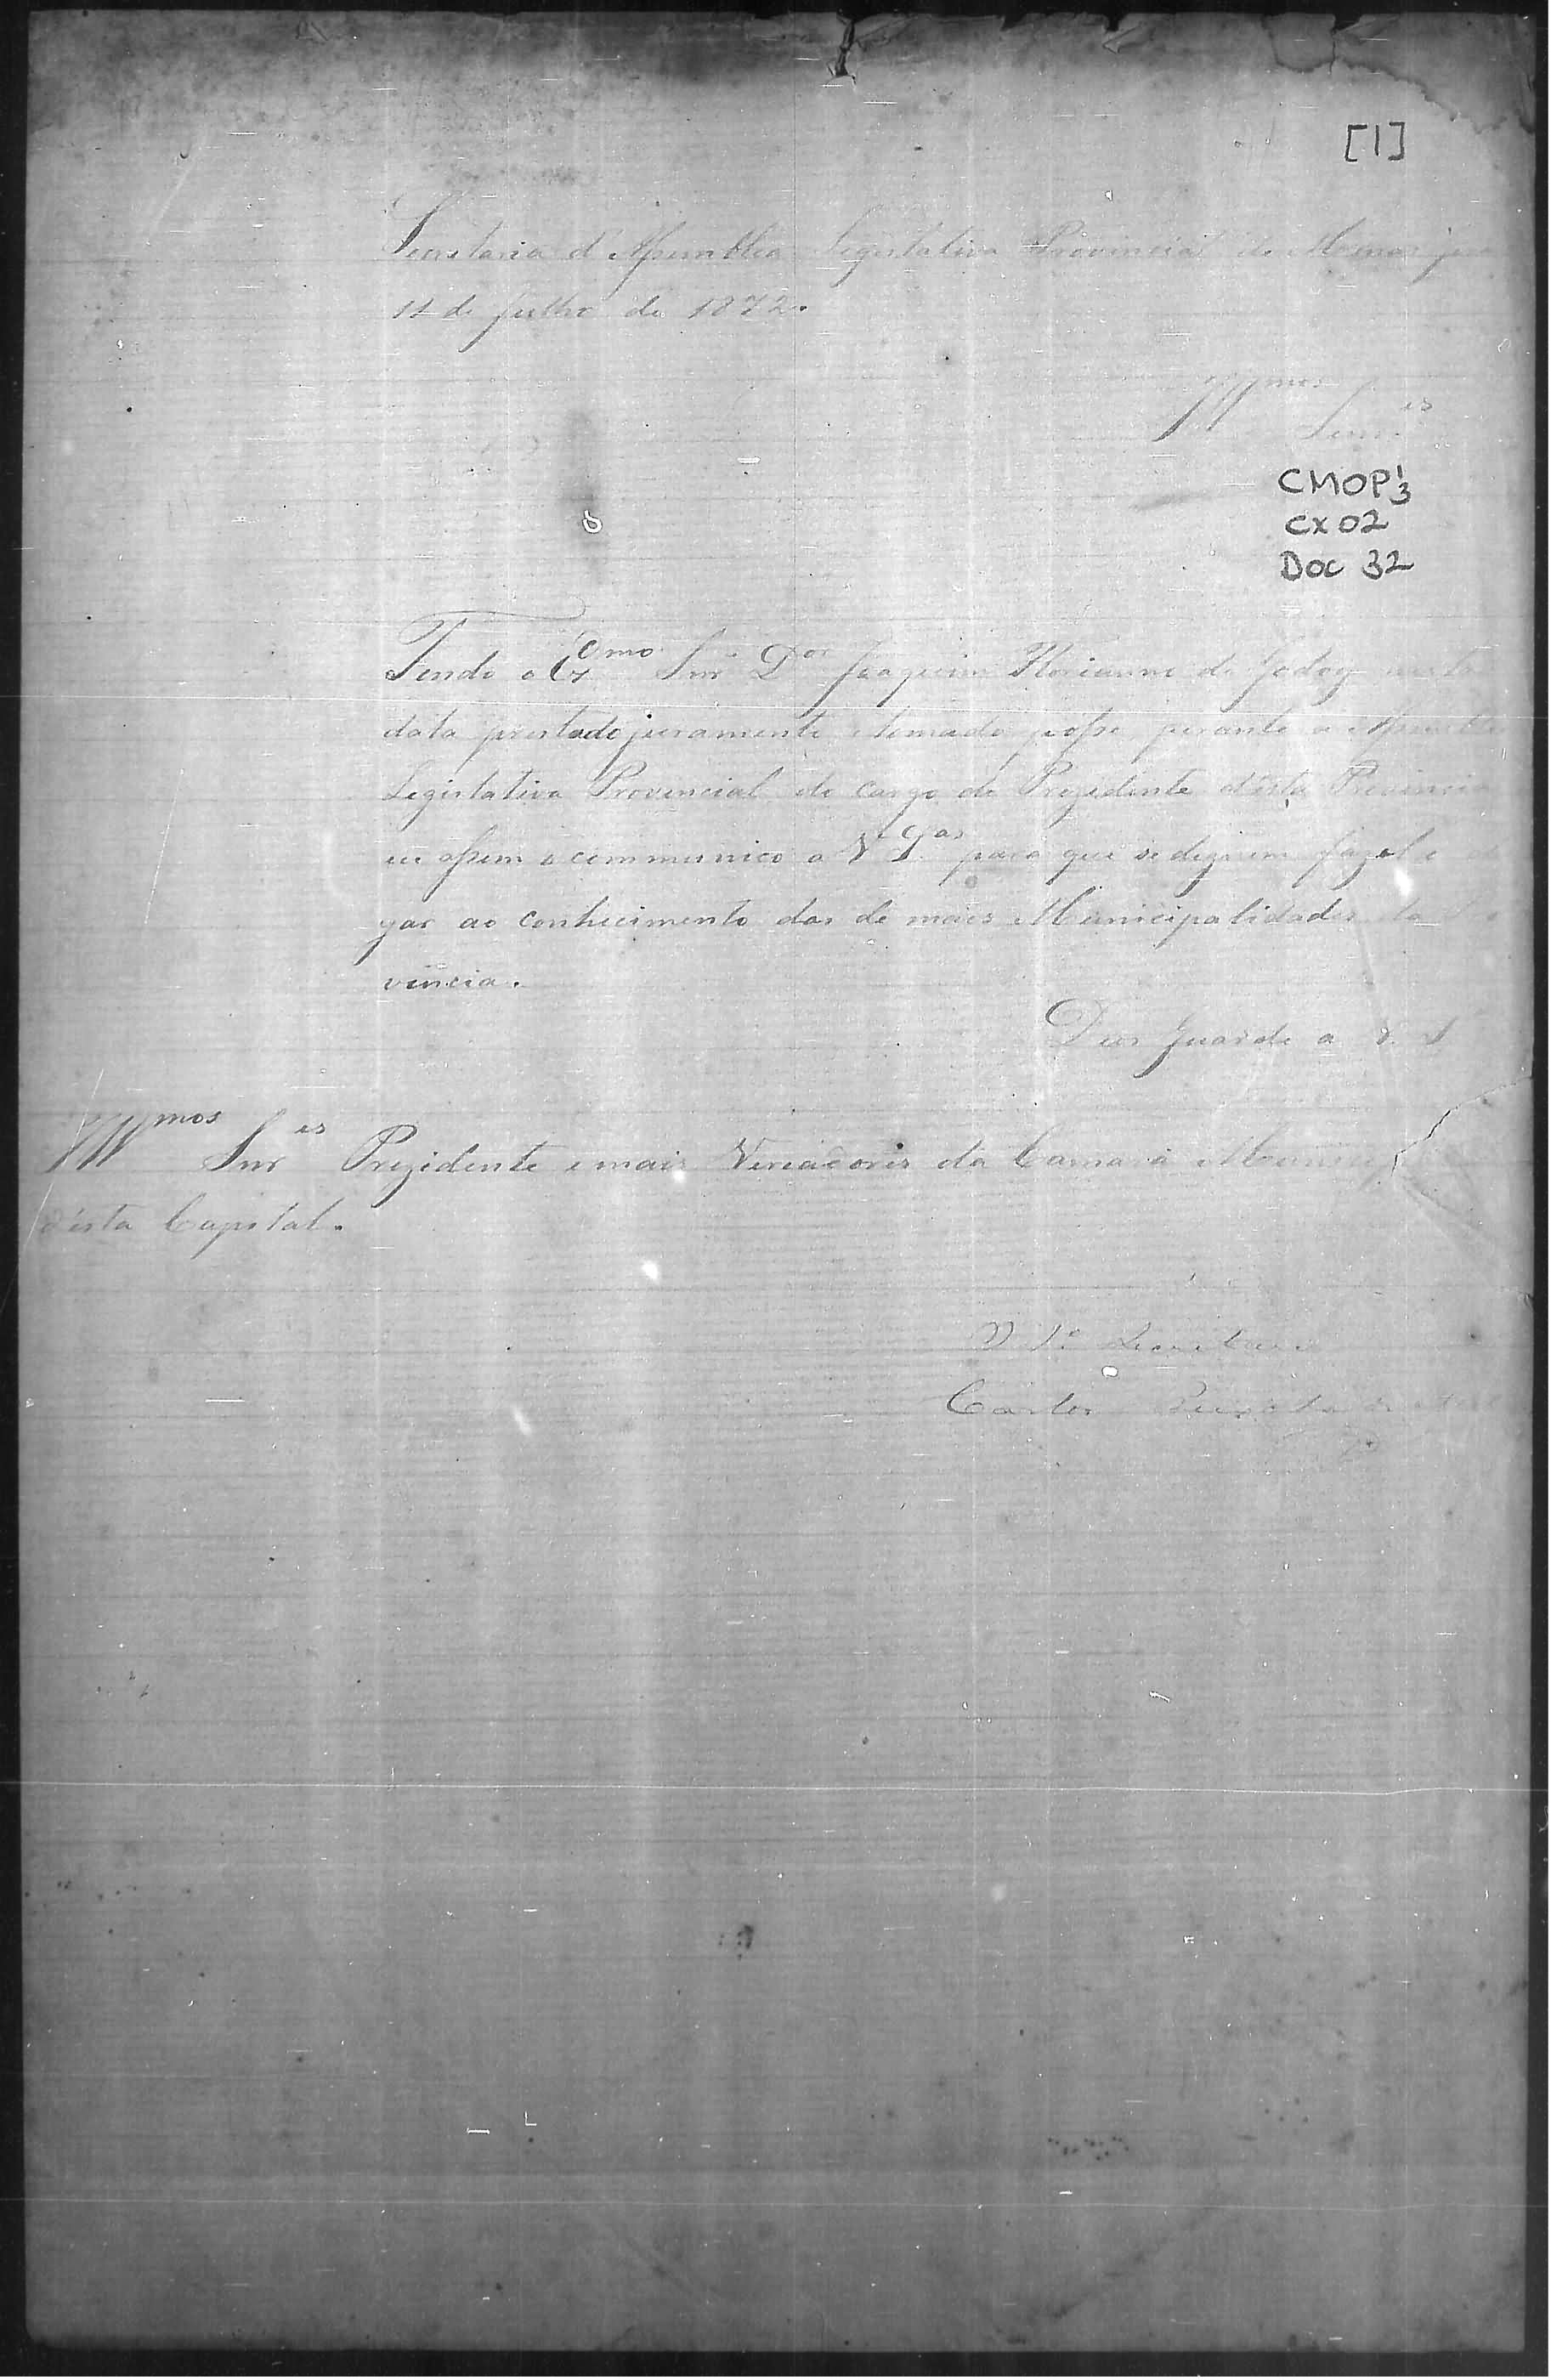 [1]
Secretaria d'Assemblea Legislativa Provincial de Minas
11 de Julho de 1872.
Illmos Senres
CMOP 1/3
CX 02
DOC 32
Tendo o Exmo Snr Dor Joaquim Florianno de Godoy nesta
data prestado juramento e tomado posse perante a Assemblea
Legislativa Provincial do cargo de Prezidente d'esta Provincia
eu assim o communico a V Sas para que se dignem fazel o
gar ao conhecimento das de mais Municipalidades da
vincia.
Deos Guarde a V. S
Illmos Snres Prezidente e mais Vereadores da Camara
d'esta Capital.
O 1º Secretario
Carlos Peixoto de